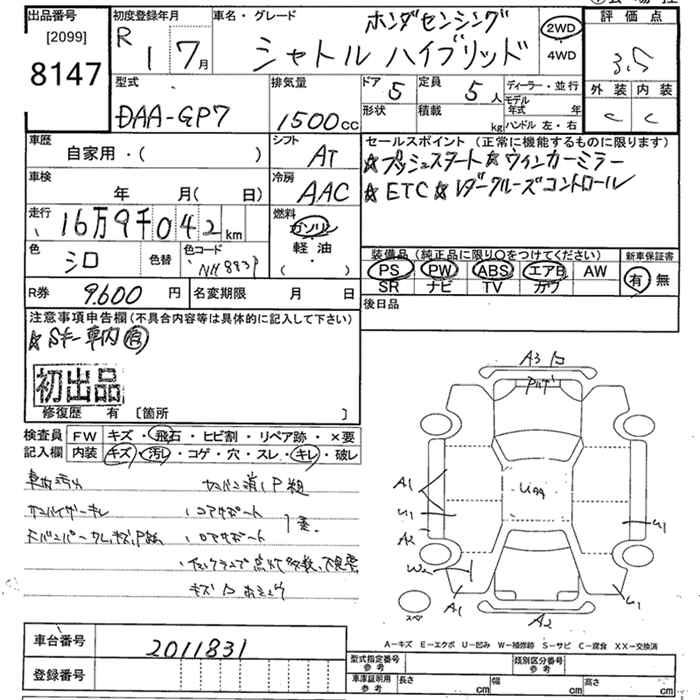 出品番号
[2099]
8147
初度登録年月
R 1 7月
車名・グレード
ホンダセンシング
シャトル ハイブリッド
2WD
4WD
評価点
3.5
外装 内装
C C
型式
DAA-GP7
排気量
1500cc
ドア 5
定員 5人
形状
積載 kg
ディーラー・並行
モデル年式 年
ハンドル 左・右
車歴
自家用・( )
シフト
AT
セールスポイント(正常に機能するものに限ります)
☆プッシュスタート☆ウィンカーミラー
☆ETC☆レダークルーズコントロール
車検
年 月( 日)
冷房
AAC
走行
16万9千042km
燃料
ガソリン
軽油
( )
色
シロ
色替
色コード
装備品(純正品に限り○をつけてください)
PS PW ABS エアB AW
SR ナビ TV カワ
新車保証書
有 無
R券 9600円
名変期限 月 日
後日品
注意事項申告欄(不具合内容等は具体的に記入して下さい)
☆Sキー車内有
初出品
修復歴 有 〔箇所 〕
検査員記入欄
FW キズ・飛石・ヒビ割・リペア跡・×要
内装 キズ・汚レ・コゲ・穴・スレ・キレ・破レ
車内汚れ
サンバイザーキレ
コアサポート
キズ
A3
A1
U1
A2
W2
A1
U99
U1
U1
A2
スペア
A-キズ E-エクボ U-凹み W-補修跡 S-サビ C-腐食 XX-交換済
車台番号 2011831
登録番号
型式指定番号 参考
類別区分番号 参考
車庫証明用 参考
長さ cm
幅 cm
高さ cm